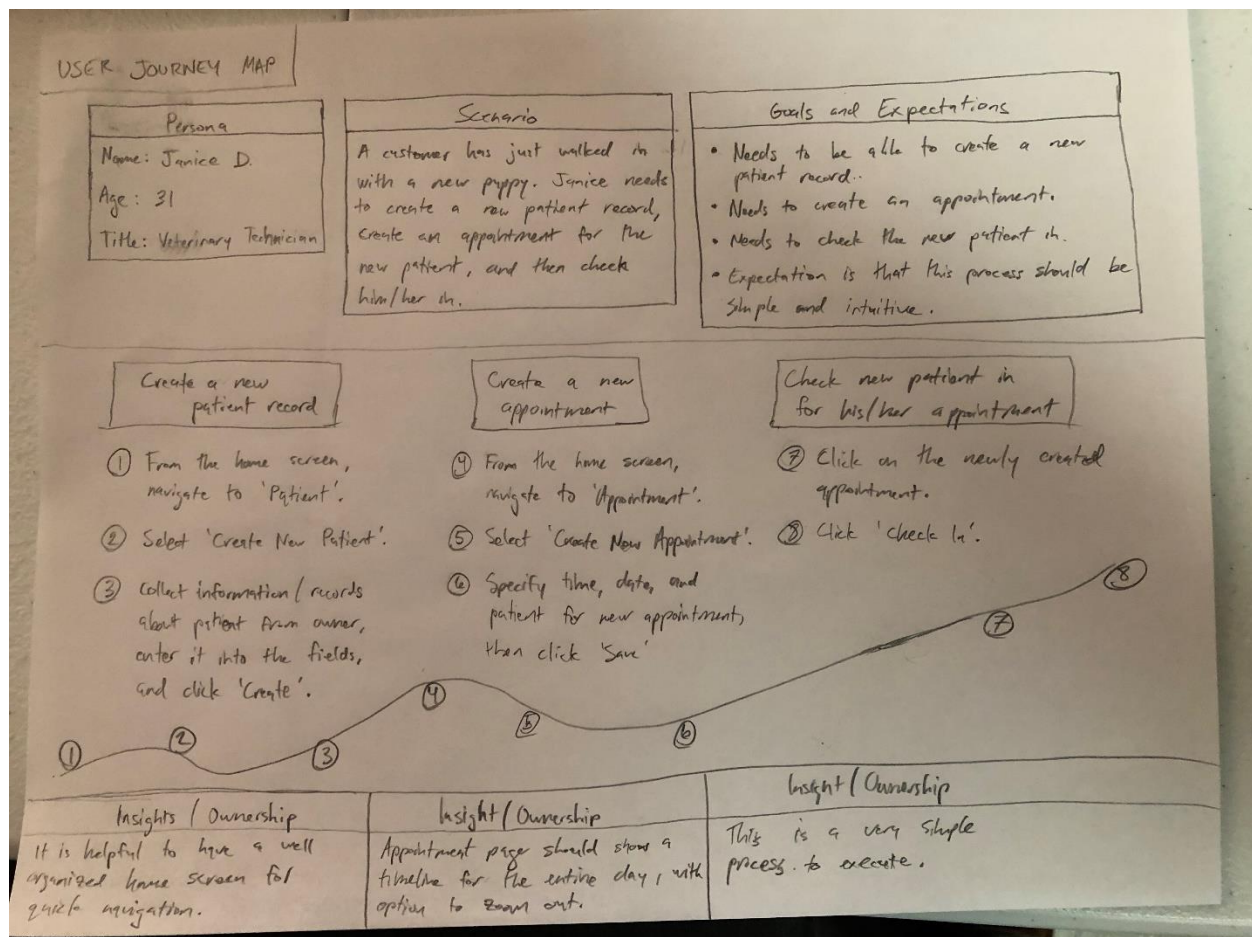 USER JOURNEY MAP
Persona
Name: Janice D.
Age: 31
Title: Veterinary Technician
Scenario
A customer has just walked in
with a new puppy. Janice needs
to create a new patient record,
create an appointment for the
new patient, and then check
him/her in.
Goals and Expectations
• Needs to be able to create a new
patient record..
• Needs to create an appointment.
• Needs to check the new patient in.
• Expectation is that this process should be
simple and intuitive.
Create a new
patient record
① From the home screen,
navigate to 'Patient'.
② Select 'Create New Patient'.
③ Collect information/records
about patient from owner,
enter it into the fields,
and click 'Create'.
Create a new
appointment
④ From the home screen,
navigate to 'Appointment'.
⑤ Select 'Create New Appointment'.
⑥ Specify time, date, and
patient for new appointment,
then click 'Save'
Check new patient in
for his/her appointment
⑦ Click on the newly created
appointment.
⑧ Click 'Check In'.
① ② ③ ④ ⑤ ⑥ ⑦ ⑧
Insights / Ownership
It is helpful to have a well
organized home screen for
quick navigation.
Insight / Ownership
Appointment page should show a
timeline for the entire day, with
option to zoom out.
Insight / Ownership
This is a very simple
process to execute.